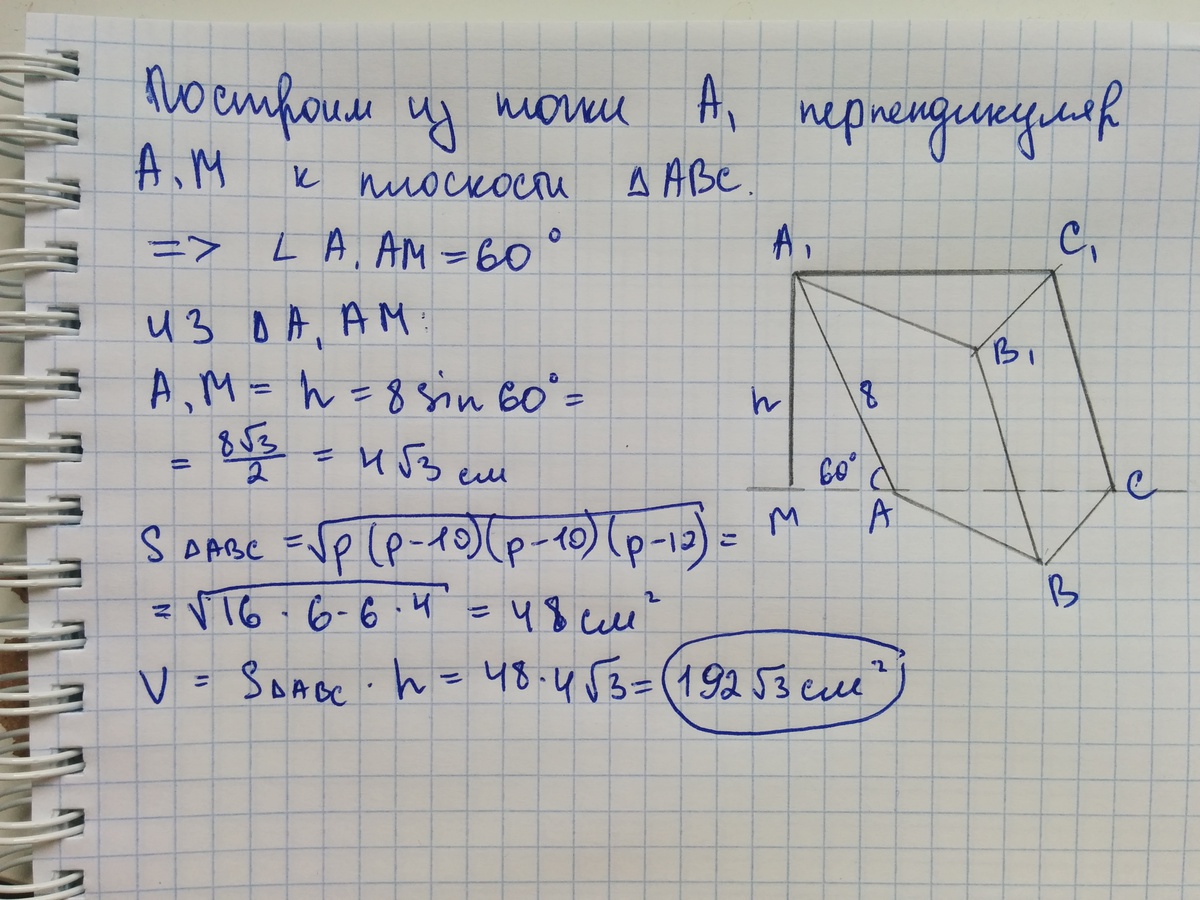 Построим из точки A₁ перпендикуляр
A₁M к плоскости ΔABC.
=> ∠ A₁AM = 60°
из ΔA₁AM:
A₁M = h = 8 sin 60° =
= 8√3/2 = 4√3 см
S ΔABC = √p(p-10)(p-10)(p-12) =
= √16 · 6 · 6 · 4 = 48 см²
V = SΔABC · h = 48 · 4√3 = 192√3 см²
A₁
C₁
B₁
h
8
60°
M
A
C
B